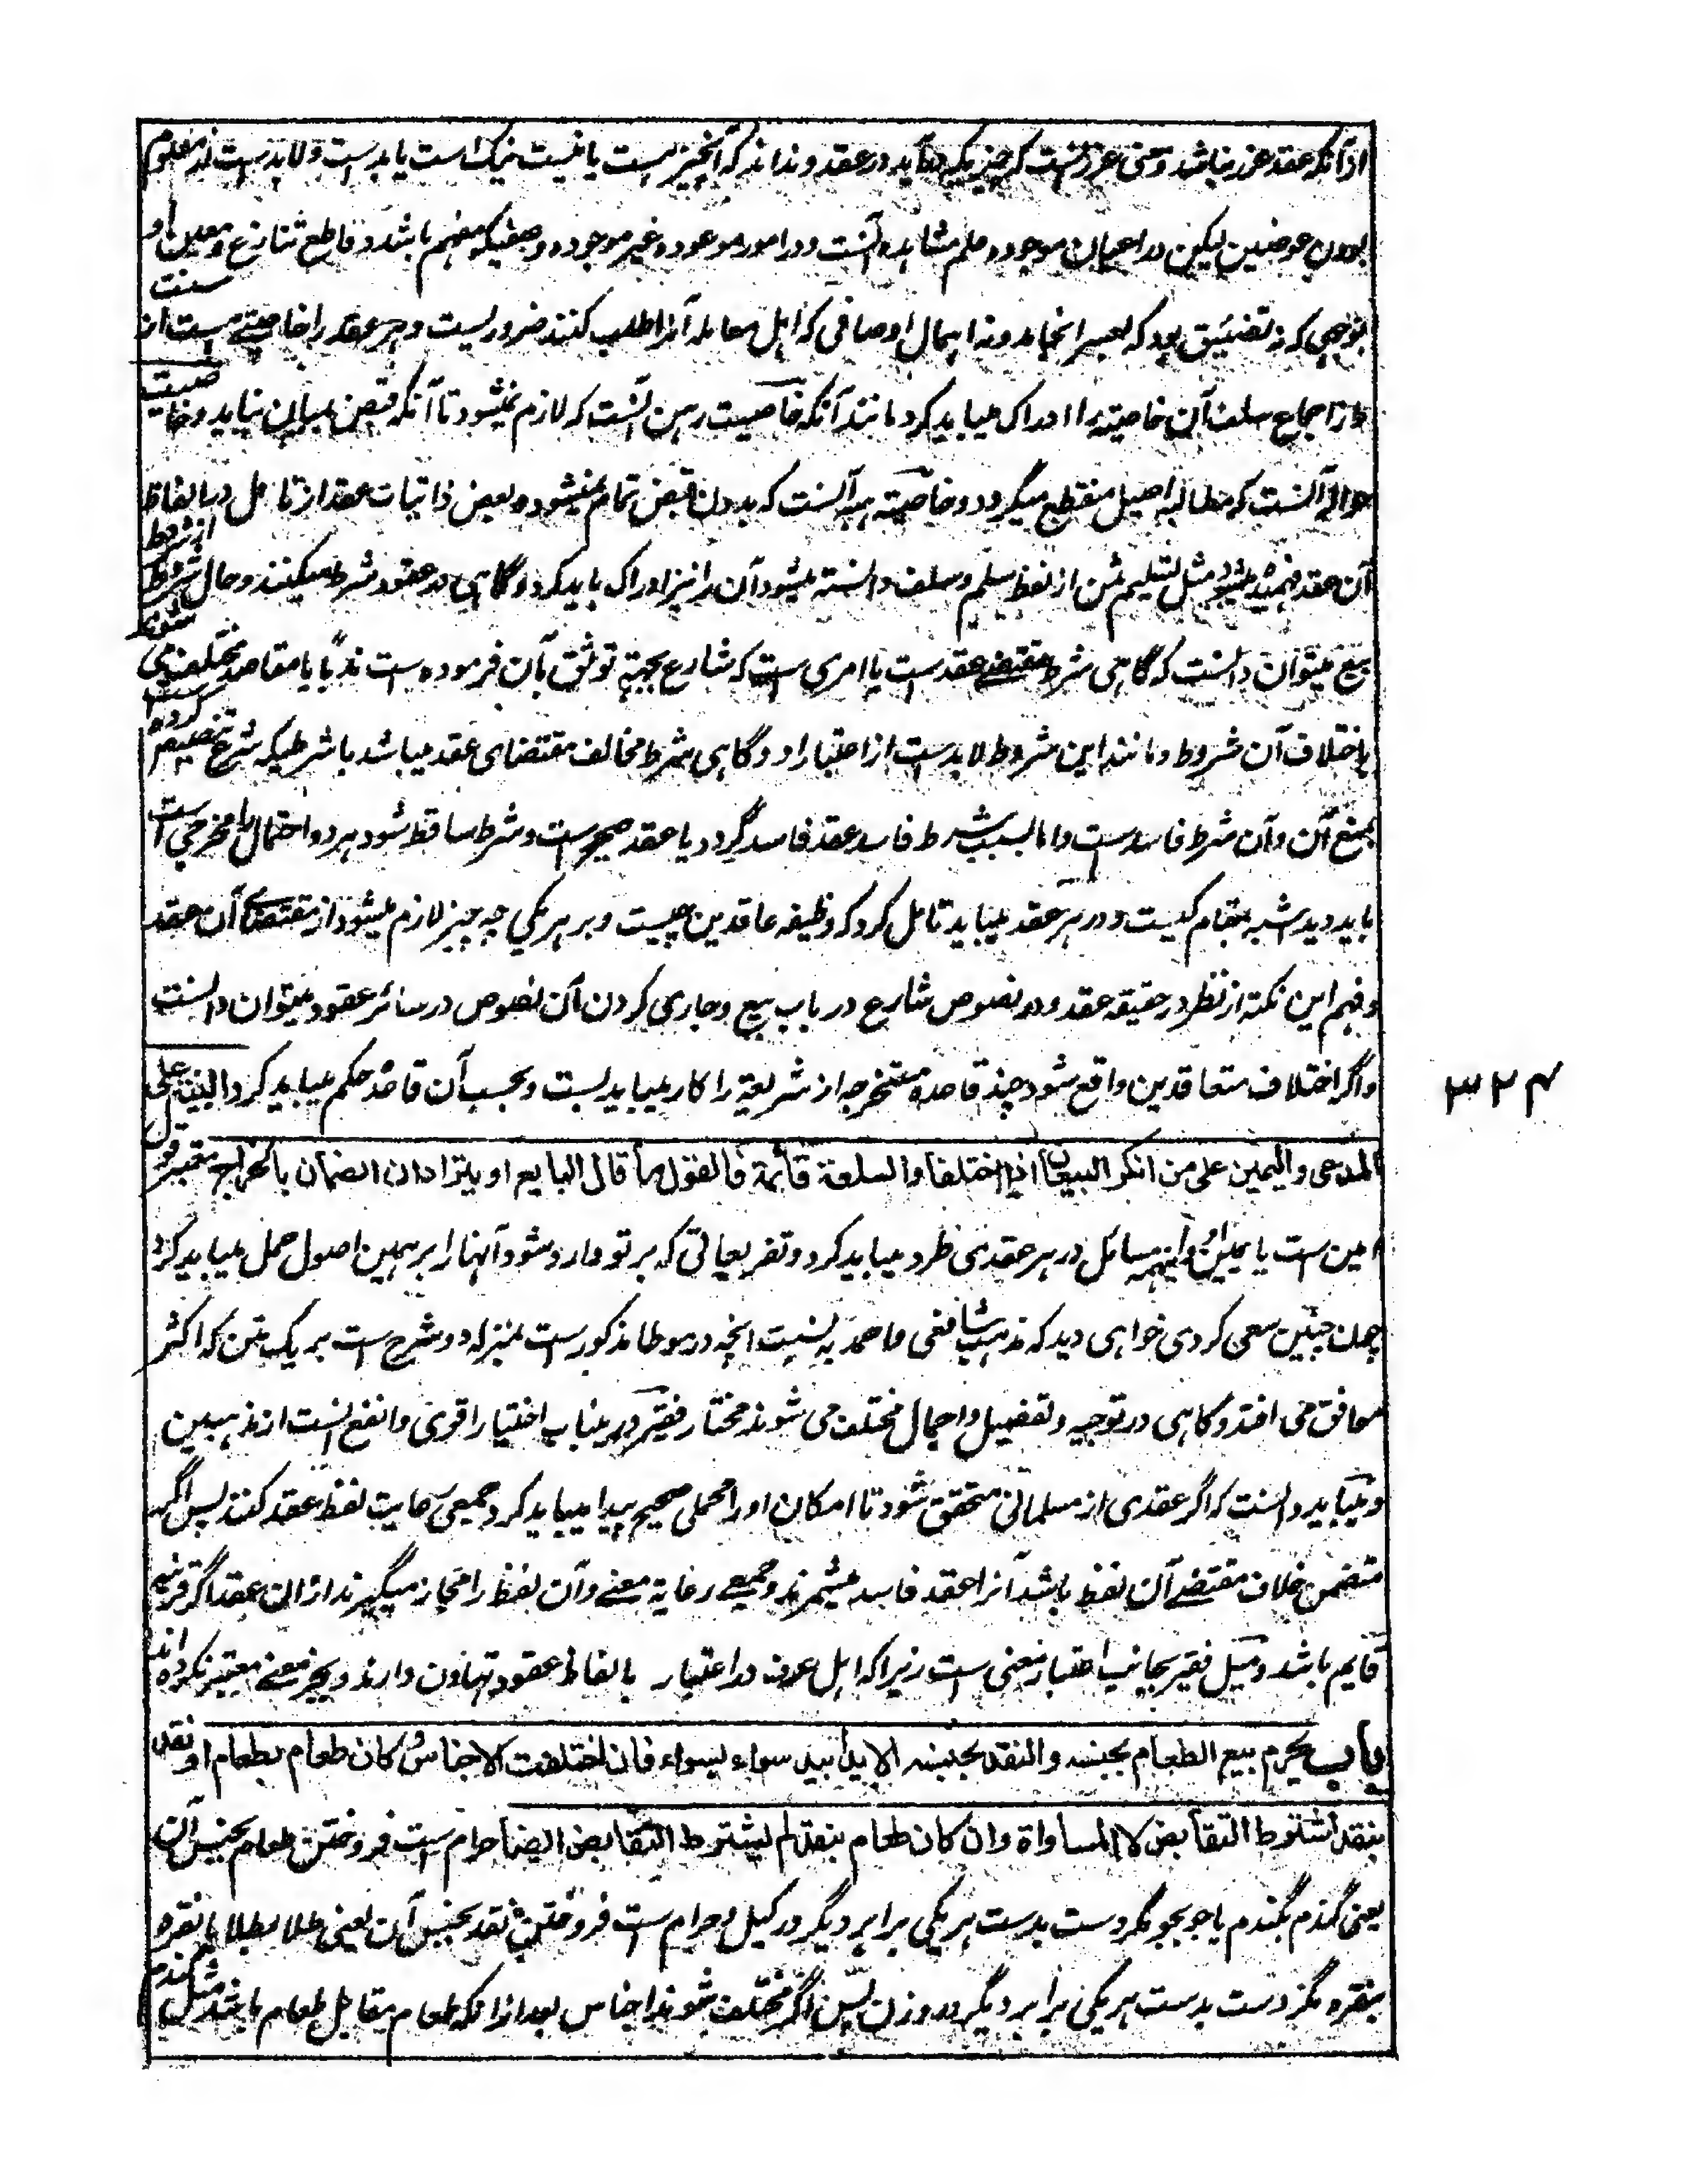 ازانکه عقد غرر نباشد و معنی غرر آنست که چیزیکه درآید در عقد و نداند که آنچیز هست یا نیست نیک است یا بد ست و لابد ست از معلوم
بودن عوضین لیکن در اعیان موجوده علم مشاهده آنست و در امور موعوده غیر موجوده وصفیکه مفهم باشد و قاطع تنازع و معین او
بوجهی که نه تضییق بود که بعسر انجامد و نه اهمال اوصافی که اهل معامله آنرا طلب کنند ضروریست و هر عقد را خاصیتے هست از سنت
و از اجماع سلف آن خاصیته را ادراک میباید کرد مانند آنکه خاصیت رهن آنست که لازم نمیشود تا آنکه قبض بمیان نیاید و خاصیت
حواله آنست که مطالبه اصیل منقطع میگردد و خاصیته هبه آنست که بدون قبض تمام نمیشود و بعض ذاتیات عقد از تامل در الفاظ
آن عقد فهمیده میشود مثل تسلیم ثمن از لفظ سلم و سلف دانسته میشود آن را نیز ادراک باید کرد و گاهی در عقود شرط میکنند و حال شروط از شروط
بیع میتوان دانست که گاهی شرط مقتضے عقد ست یا امری ست که شارع بجهة توثق بآن فرموده ست ندبًا یا مقاصد مختلف می شود
باختلاف آن شروط و مانند این شروط لابد ست از اعتبار او و گاهی شرط مخالف مقتضای عقد میباشد یا شرطیکه شرع تصمیم کرده ست
بمنع آن و آن شرط فاسد ست و اما بسبب شرط فاسد عقد فاسد گردد یا عقد صحیح ست و شرط ساقط شود هر دو احتمال را مخرجی ست
باید دید اشبه بمقام کدیست و در هر عقد میباید تامل کرد که وظیفه عاقدین چیست و بر هر یکی چه چیز لازم میشود از مقتضای آن عقد
و فهم این نکته از نظر در حقیقه عقد و در نصوص شارع در باب بیع و جاری کردن آن نصوص در سائر عقود میتوان دانست
و اگر اختلاف متعاقدین واقع شود چند قاعده مستخرجه از شریعة را کار میباید بست و بحسب آن قاعده حکم میباید کرد البینة علی
المدعی والیمین علی من انکر البیعان اذا اختلفا والسلعة قائمة فالقول ما قال البایع او یترادان الضمان بالخراج معتبر قول
امین ست با یمین او و اینهمه مسائل در هر عقدی طرد میباید کرد و تفریعاتی که بر تو وارد شود آنها را بر همین اصول حمل میباید کرد
چون چنین سعی کردی خواهی دید که مذهب شافعی و احمد به نسبت انچه در موطا مذکور ست بمنزله دو شرح ست بر یک متن که اکثر
موافق می افتد و گاهی در توجیه و تفصیل و اجمال مختلف می شوند مختار فقیر درینباب اختیار اقوی و انفع آنست از مذهبین
و میباید دانست که اگر عقدی از مسلمانی متحقق شود تا امکان او را محملی صحیح پیدا میباید کرد جمعی رعایت لفظ عقد کنند پس اگر
متضمن خلاف مقتضے آن لفظ باشد آنرا عقد فاسد میشمرند و جمیعے رعایة معنے و آن لفظ را مجاز میگیرند ازان عقد اگر قرینه
قایم باشد و میل فقیر بجانب اعتبار معنی ست زیرا که اهل عرف در اعتبار بالفاظ عقود تهاون دارند و بجز معنے معتبر نکرده اند
باب یحرم بیع الطعام بجنسه والنقد بجنسه الا یدا بید سواء بسواء فان اختلفت الاجناس کان طعام بطعام او نقد
بنقد اشترط التقابض لا المساواة وان کان طعام بنقد لم یشترط التقابض ایضا حرام ست فروختن طعام بجنس آن
یعنی گندم بگندم یا جو بجو مگر دست بدست هر یکی برابر دیگر در کیل و حرام ست فروختن نقد بجنس آن یعنی طلا بطلا یا نقره
بنقره مگر دست بدست هر یکی برابر دیگر در وزن پس اگر مختلف شوند اجناس بعد ازانکه طعام مقابل طعام باشد مثل گندم
۳۲۴